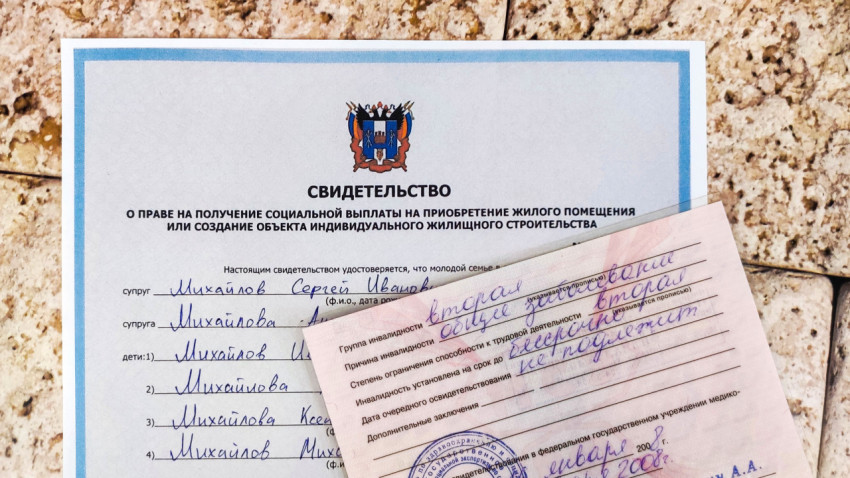 СВИДЕТЕЛЬСТВО
О ПРАВЕ НА ПОЛУЧЕНИЕ СОЦИАЛЬНОЙ ВЫПЛАТЫ НА ПРИОБРЕТЕНИЕ ЖИЛОГО ПОМЕЩЕНИЯ
ИЛИ СОЗДАНИЕ ОБЪЕКТА ИНДИВИДУАЛЬНОГО ЖИЛИЩНОГО СТРОИТЕЛЬСТВА
Настоящим свидетельством удостоверяется, что молодой семье в
супруг Михайлов Сергей Иванови
(ф.и.о., дата рож
супруга Михайлова
дети:1) Михайлов
2) Михайлова
3) Михайлова Ксе
(ф
4) Михайлов Миха
(ф.и
Группа инвалидности вторая
(указывается прописью)
Причина инвалидности общее заболевание
Степень ограничения способности к трудовой деятельности вторая
(указывается прописью)
Инвалидность установлена на срок до бессрочно
Дата очередного освидетельствования не подлежит
Дополнительные заключения
освидетельствования в федеральном государственном учреждении медико-
января 2008
2008г.
А.А.